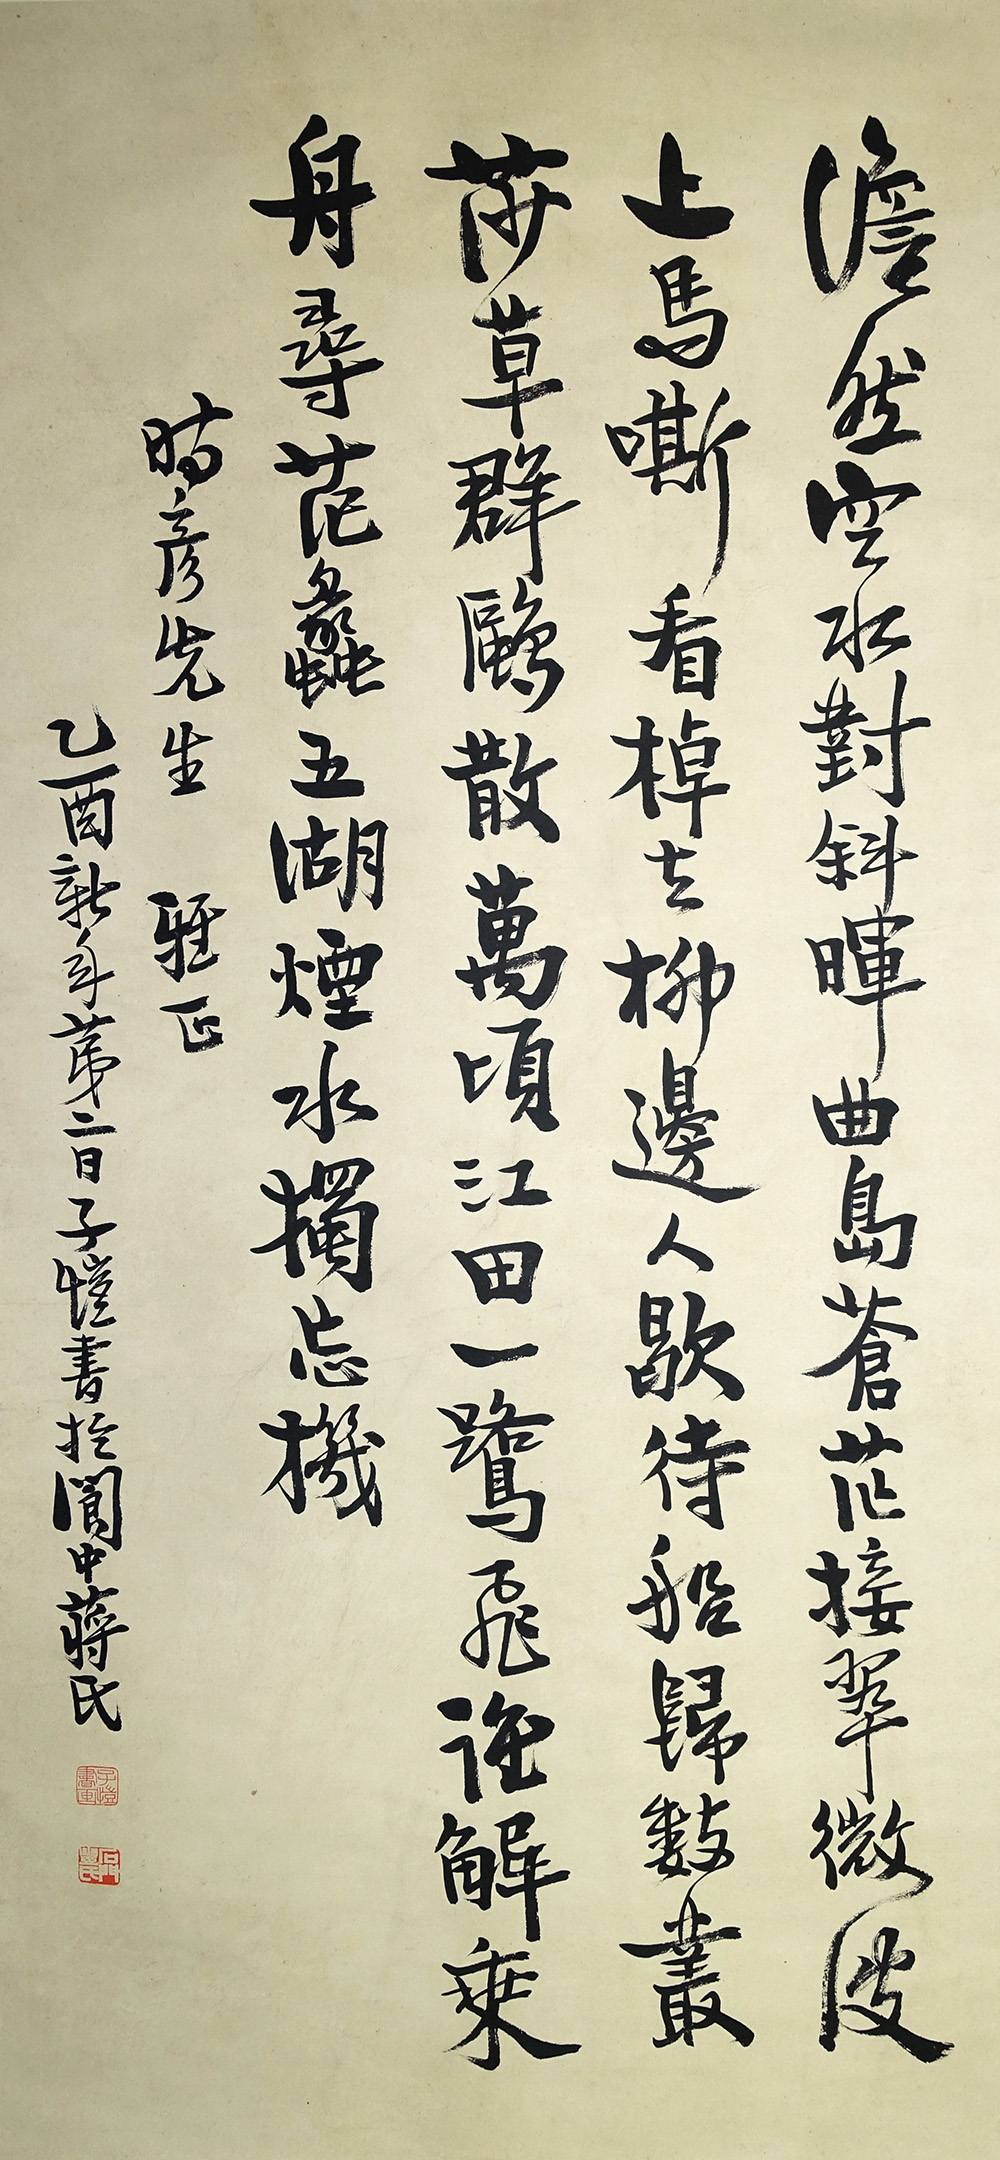 澹然空水對斜暉曲島蒼茫接翠微波
上馬嘶看棹去柳邊人歇待船歸數叢
莎草群鷗散萬頃江田一鷺飛誰解乘
舟尋范蠡五湖煙水獨忘機
時彥先生 雅正
乙酉新年第二日子愷書於閬中蔣氏
子愷書畫
石門豐氏